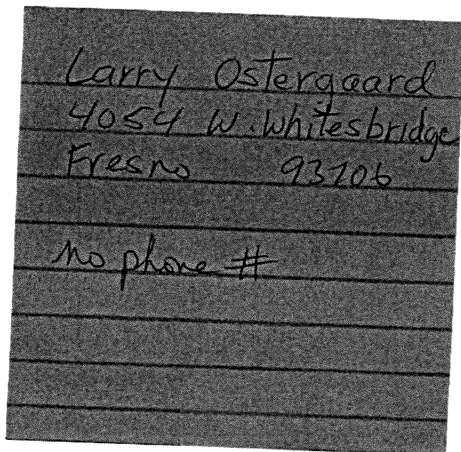 Larry Ostergaard
4054 W. Whitesbridge
Fresno 93706
no phone #